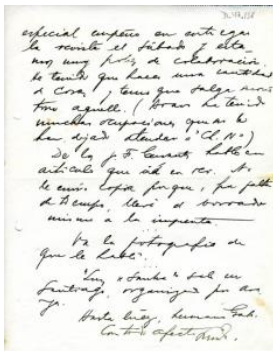 especial empeño en entregar
la revista el sábado y esta-
mos muy de colaboración.
He tenido que hacer una cantidad
de cosas y temo que salga
otro aquello. (Bravo ha tenido
muchas ocupaciones que no le
han dejado atender a "Ch. N.")
De la J. F. hablé en
artículo que irá en rev. No
te envío copia porque, por falta
de tiempo, llevé el borrador
mismo a la imprenta.
Va la fotografía de
que le hablé.
"Luz y Sombra" sale en
Santiago, organizado por
Hasta luego, hermano
Con todo afecto